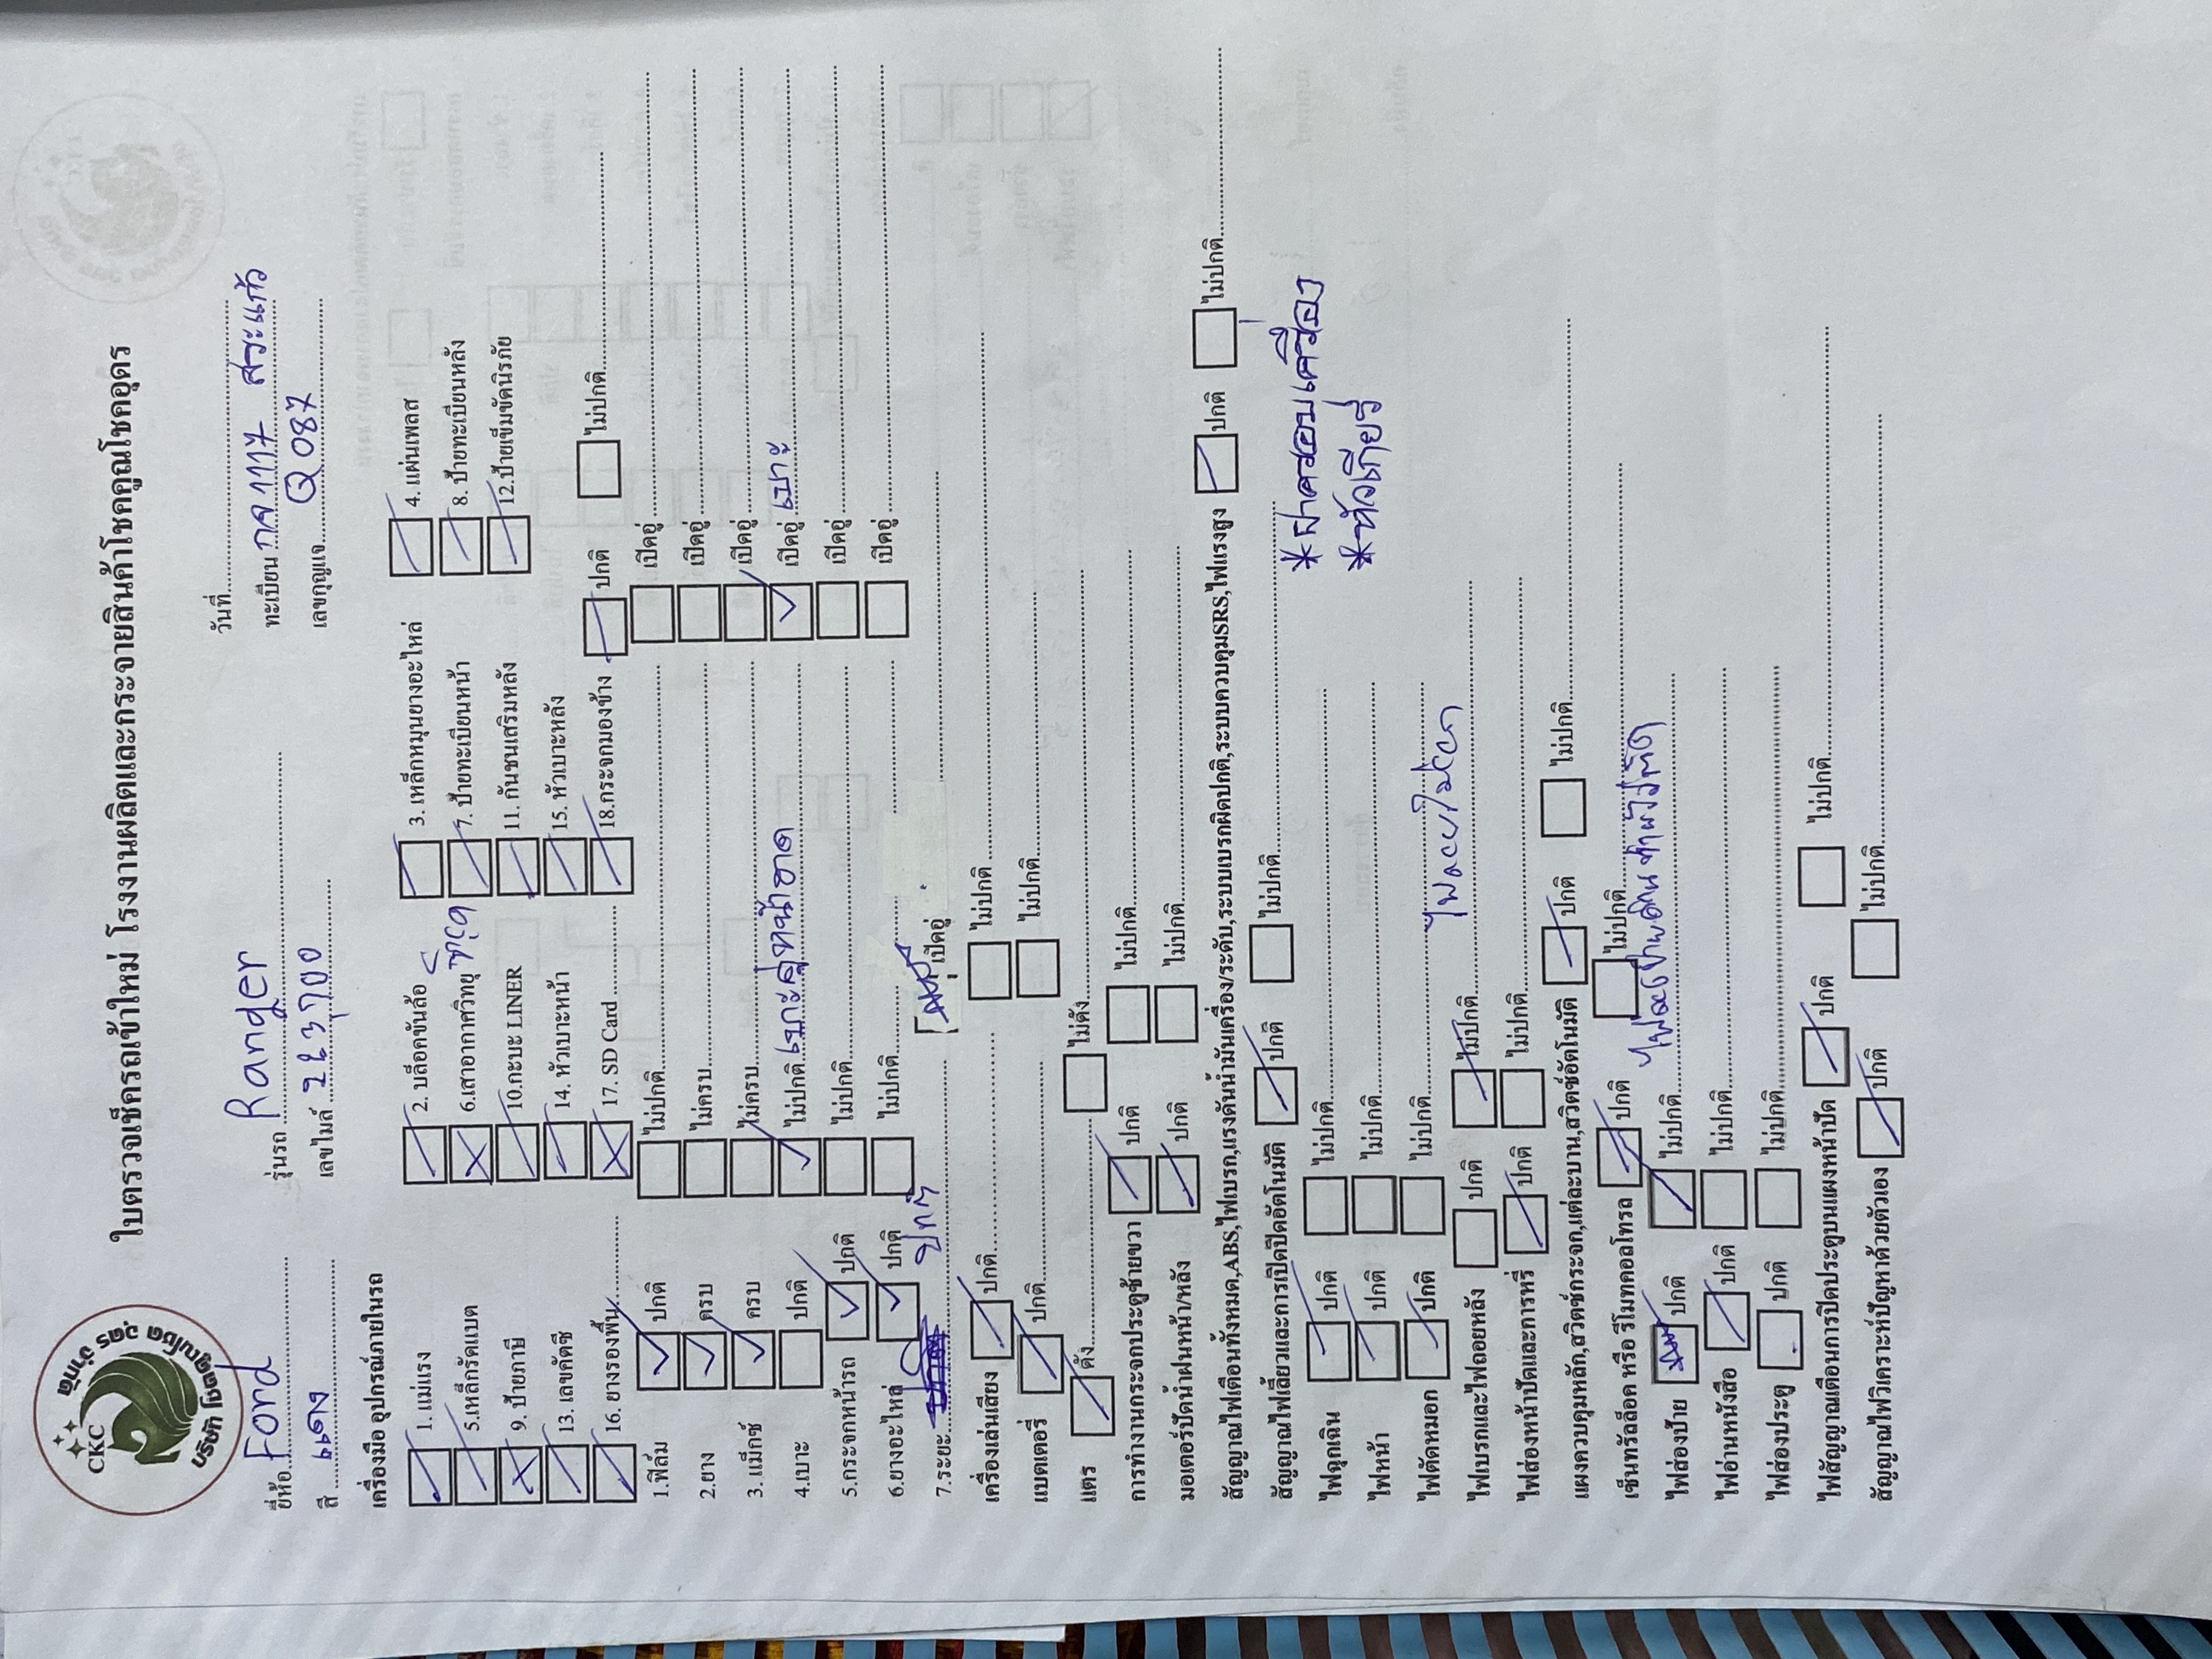 ใบตรวจเช็ครถเข้าใหม่ โรงงานผลิตและกระจายสินค้าโชคคูณโชคอุดร
CKC
บริษัท โชคคูณโชค อุดร จำกัด
วันที่
ยี่ห้อ Ford รุ่นรถ Ranger ทะเบียน กจ 1117 สระแก้ว
สี แดง เลขไมล์ 223700 เลขกุญแจ Q087
เครื่องมือ อุปกรณ์ภายในรถ
1. แม่แรง 2. บล็อคขันล้อ 3. เหล็กหมุนยางอะไหล่ 4. แผ่นเพลส
5.เหล็กรัดแบต 6.เสาอากาศวิทยุ ชำรุด 7. ป้ายทะเบียนหน้า 8. ป้ายทะเบียนหลัง
9. ป้ายภาษี 10.กะบะ LINER 11. กันชนเสริมหลัง 12.ป้ายเข็มขัดนิรภัย
13. เลขคัตซี 14. หัวเบาะหน้า 15. หัวเบาะหลัง
16. ยางรองพื้น 17. SD Card 18.กระจกมองข้าง ปกติ ไม่ปกติ
1.ฟิล์ม ปกติ ไม่ปกติ เบิดอู่
2.ยาง ครบ ไม่ครบ เบิดอู่
3. แม็กซ์ ครบ ไม่ครบ เบิดอู่
4.เบาะ ปกติ ไม่ปกติ เบาะคู่หน้าขาด เบิดอู่ เบาะ
5.กระจกหน้ารถ ปกติ ไม่ปกติ เบิดอู่
6.ยางอะไหล่ ปกติ ไม่ปกติ เบิดอู่
7.ระยะ ปกติ เบิดอู่
เครื่องเล่นเสียง ปกติ ไม่ปกติ
แบตเตอรี่ ปกติ ไม่ปกติ
แตร ดัง ไม่ดัง
การทำงานกระจกประตูซ้ายขวา ปกติ ไม่ปกติ
มอเตอร์ปัดน้ำฝนหน้า/หลัง ปกติ ไม่ปกติ
สัญญาณไฟเตือนทั้งหมด,ABS,ไฟเบรก,แรงดันน้ำมันเครื่อง/ระดับ,ระบบเบรกผิดปกติ,ระบบควบคุมSRS,ไฟแรงสูง ปกติ ไม่ปกติ
สัญญาณไฟเลี้ยวและการเปิดปิดอัตโนมัติ ปกติ ไม่ปกติ
*ฝาครอบเครื่อง
ไฟฉุกเฉิน ปกติ ไม่ปกติ
*หัวเกียร์
ไฟหน้า ปกติ ไม่ปกติ
ไฟตัดหมอก ปกติ ไม่ปกติ
ไฟเบรกและไฟถอยหลัง ปกติ ไม่ปกติ
ไฟส่องหน้าปัดและการหรี่ ปกติ ไม่ปกติ
แผงควบคุมหลัก,สวิตซ์กระจก,แต่ละบาน,สวิตซ์อัตโนมัติ ปกติ ไม่ปกติ
เซ็นทรัลล็อค หรือ รีโมทคอลโทรล ปกติ ไม่ปกติ
ไฟส่องป้าย ปกติ ไม่ปกติ
ไฟอ่านหนังสือ ปกติ ไม่ปกติ
ไฟส่องประตู ปกติ ไม่ปกติ
ไฟสัญญาณเตือนการปิดประตูบนแผงหน้าปัด ปกติ ไม่ปกติ
สัญญาณไฟวิเคราะห์ปัญหาด้วยตัวเอง ปกติ ไม่ปกติ